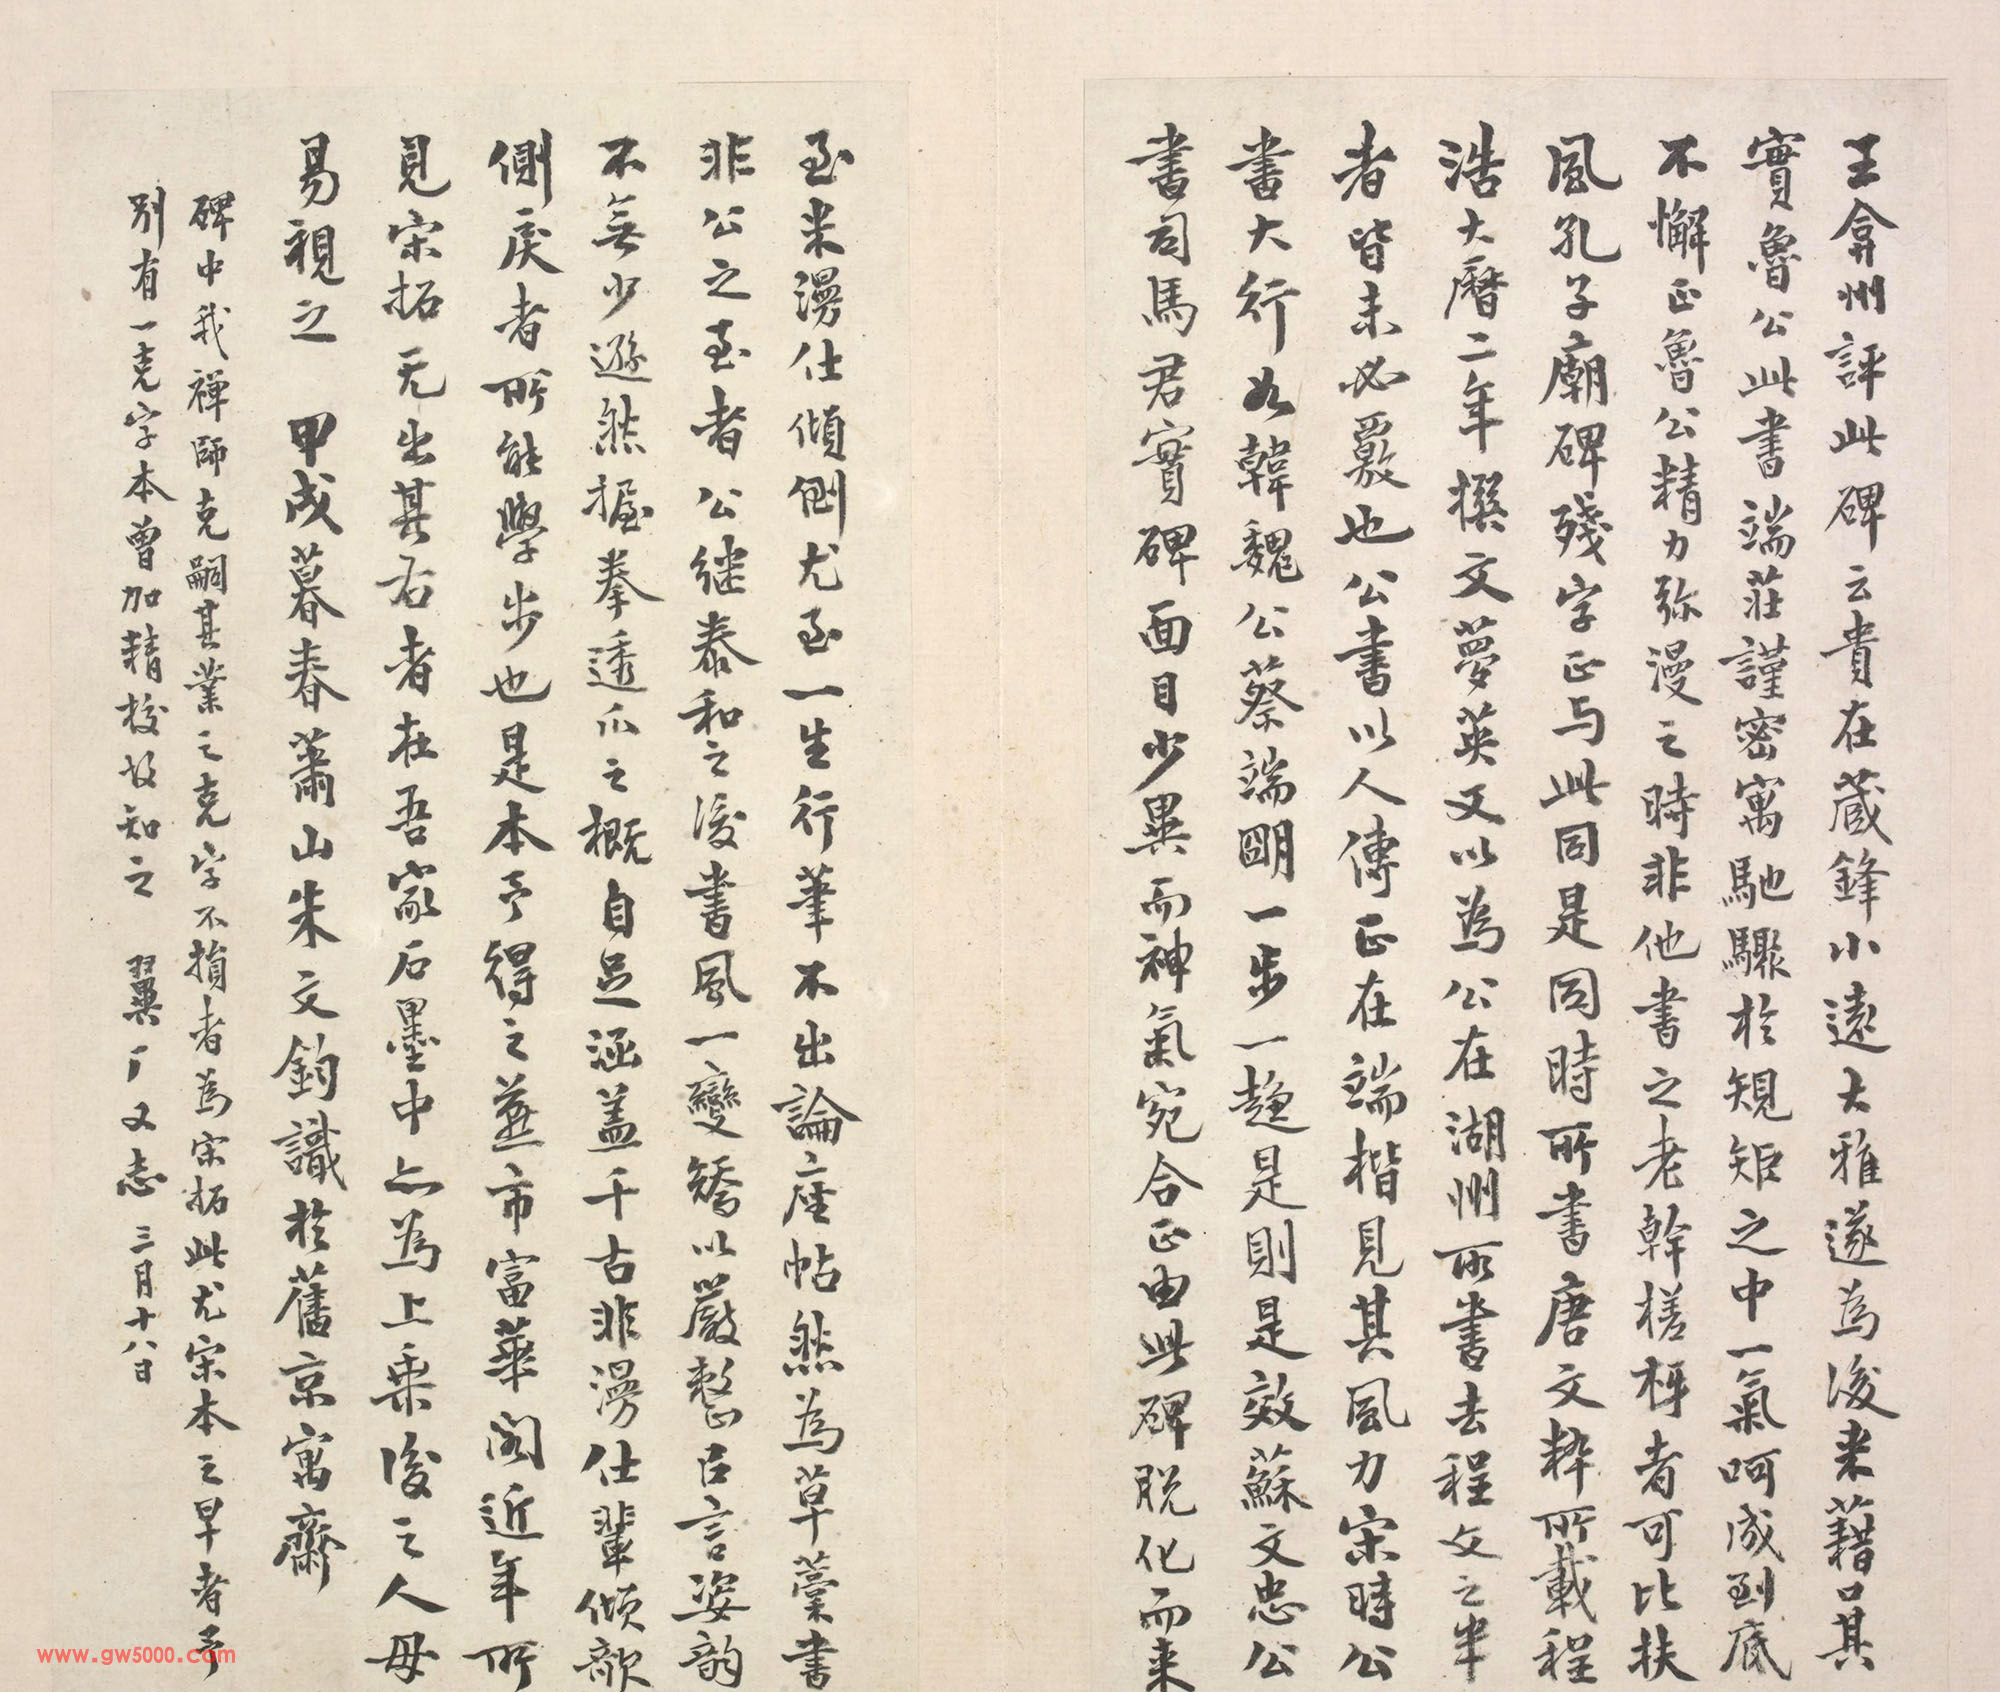 王弇州評此碑云貴在藏鋒小遠大雅遂為後来藉口其
實魯公此書端莊謹密寓馳驟於規矩之中一氣呵成到底
不懈正魯公精力弥漫之時非他書之老幹槎枒者可比扶
風孔子廟碑殘字正与此同是同時所書唐文粹所載程
浩大曆二年撰文夢英又以為公在湖州所書去程文之年
者皆未必覈也公書以人傳正在端楷見其風力宋時公
書大行如韓魏公蔡端明一步一趨是則是效蘇文忠公
書司馬君實碑面目少異而神氣宛合正由此碑脱化而来
至米漫仕傾倒尤至一生行筆不出論座帖然為草藁書
非公之至者公继泰和之後書風一變矯以嚴整正言姿韵
不無少遜然握拳透爪之概自足涵盖千古非漫仕輩傾欹
側戾者所能學步也是本予得之燕市富華閣近年所
見宋拓无出其右者在吾家石墨中亦為上乗後之人毋
易視之 甲戌暮春蕭山朱文鈞識於舊京寓齋
碑中我禅師克嗣其業之克字不損者為宋拓此尤宋本之早者予
别有一克字本曾加精校故知之 翼厂又志 三月十八日
www.gw5000.com